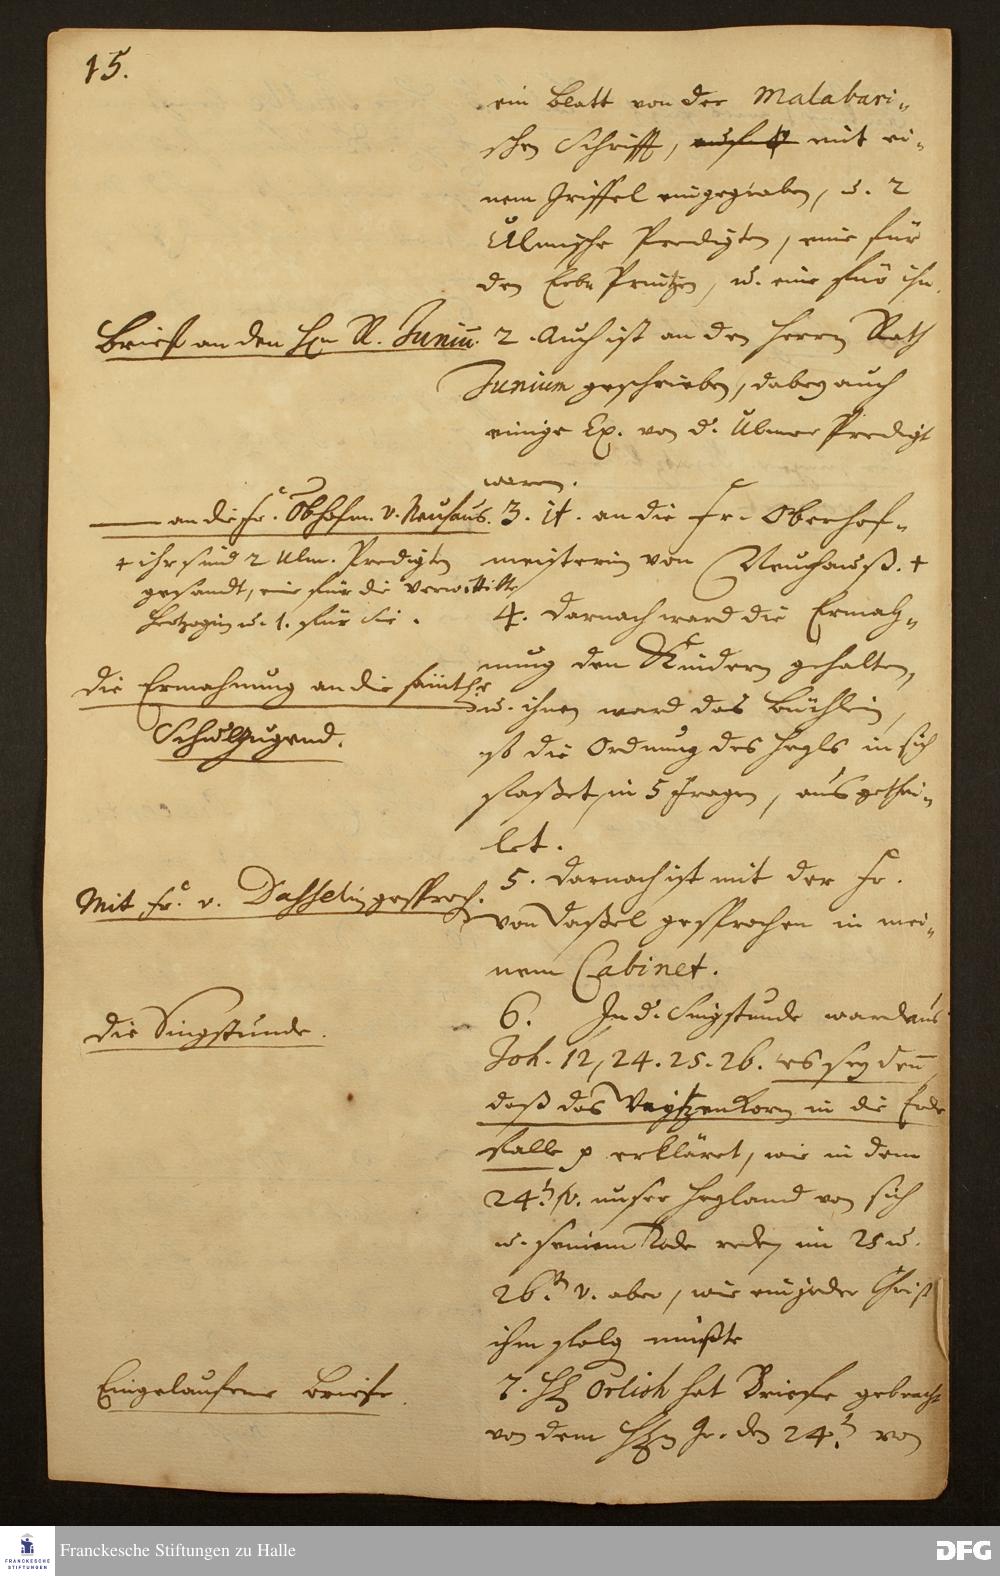 15.
ein Blatt von der Malabari-
schen Schrifft, mit ei-
nem Griffel eingegraben, u. 2
Ulmische Predigten, eine für
den Erb Printzen, u. eine für ihn.
Brieff an den H. R. Junium.
2. Auch ist an den Herrn Rath
Junium geschrieben, dabey auch
einige Ex. von d. Ulmer Predigt
waren.
— an die Fr. Obhofm. v. Neuhaus.
3. it. an die Fr. Oberhof-
meisterin von Neuhauß. +
+ ihr sind 2 Ulm. Predigten
gesandt, eine für die verwittibte
Hertzogin u. 1. für sie.
4. Darnach ward die Ermah-
nung den Kindern gehalten,
die Ermahnung an die sämtliche
Schuljugend.
u. ihnen ward das Büchlein,
so die Ordnung des Heyls in sich
faßet, in 5 Fragen, ausgethei-
let.
Mit Fr. v. Dassel gesproch.
5. Darnach ist mit der Fr.
von Daßel gesprochen in mei-
nem Cabinet.
die Singstunde.
6. In d. Singstunde ward aus
Joh. 12, 24. 25. 26. es sey denn,
daß das Weytzenkorn in die Erde
falle p erkläret, wie in dem
24. v. unser Heyland von sich
u. seinem Tode rede, im 25 u.
26. v. aber, wie ein jeder Christ
ihm folgen müßte
Eingelaufene Briefe.
7. H. Orlich hat Briefe gebracht
von dem H. Gr. den 24. von
Franckesche Stiftungen zu Halle
FRANCKESCHE
STIFTUNGEN
DFG